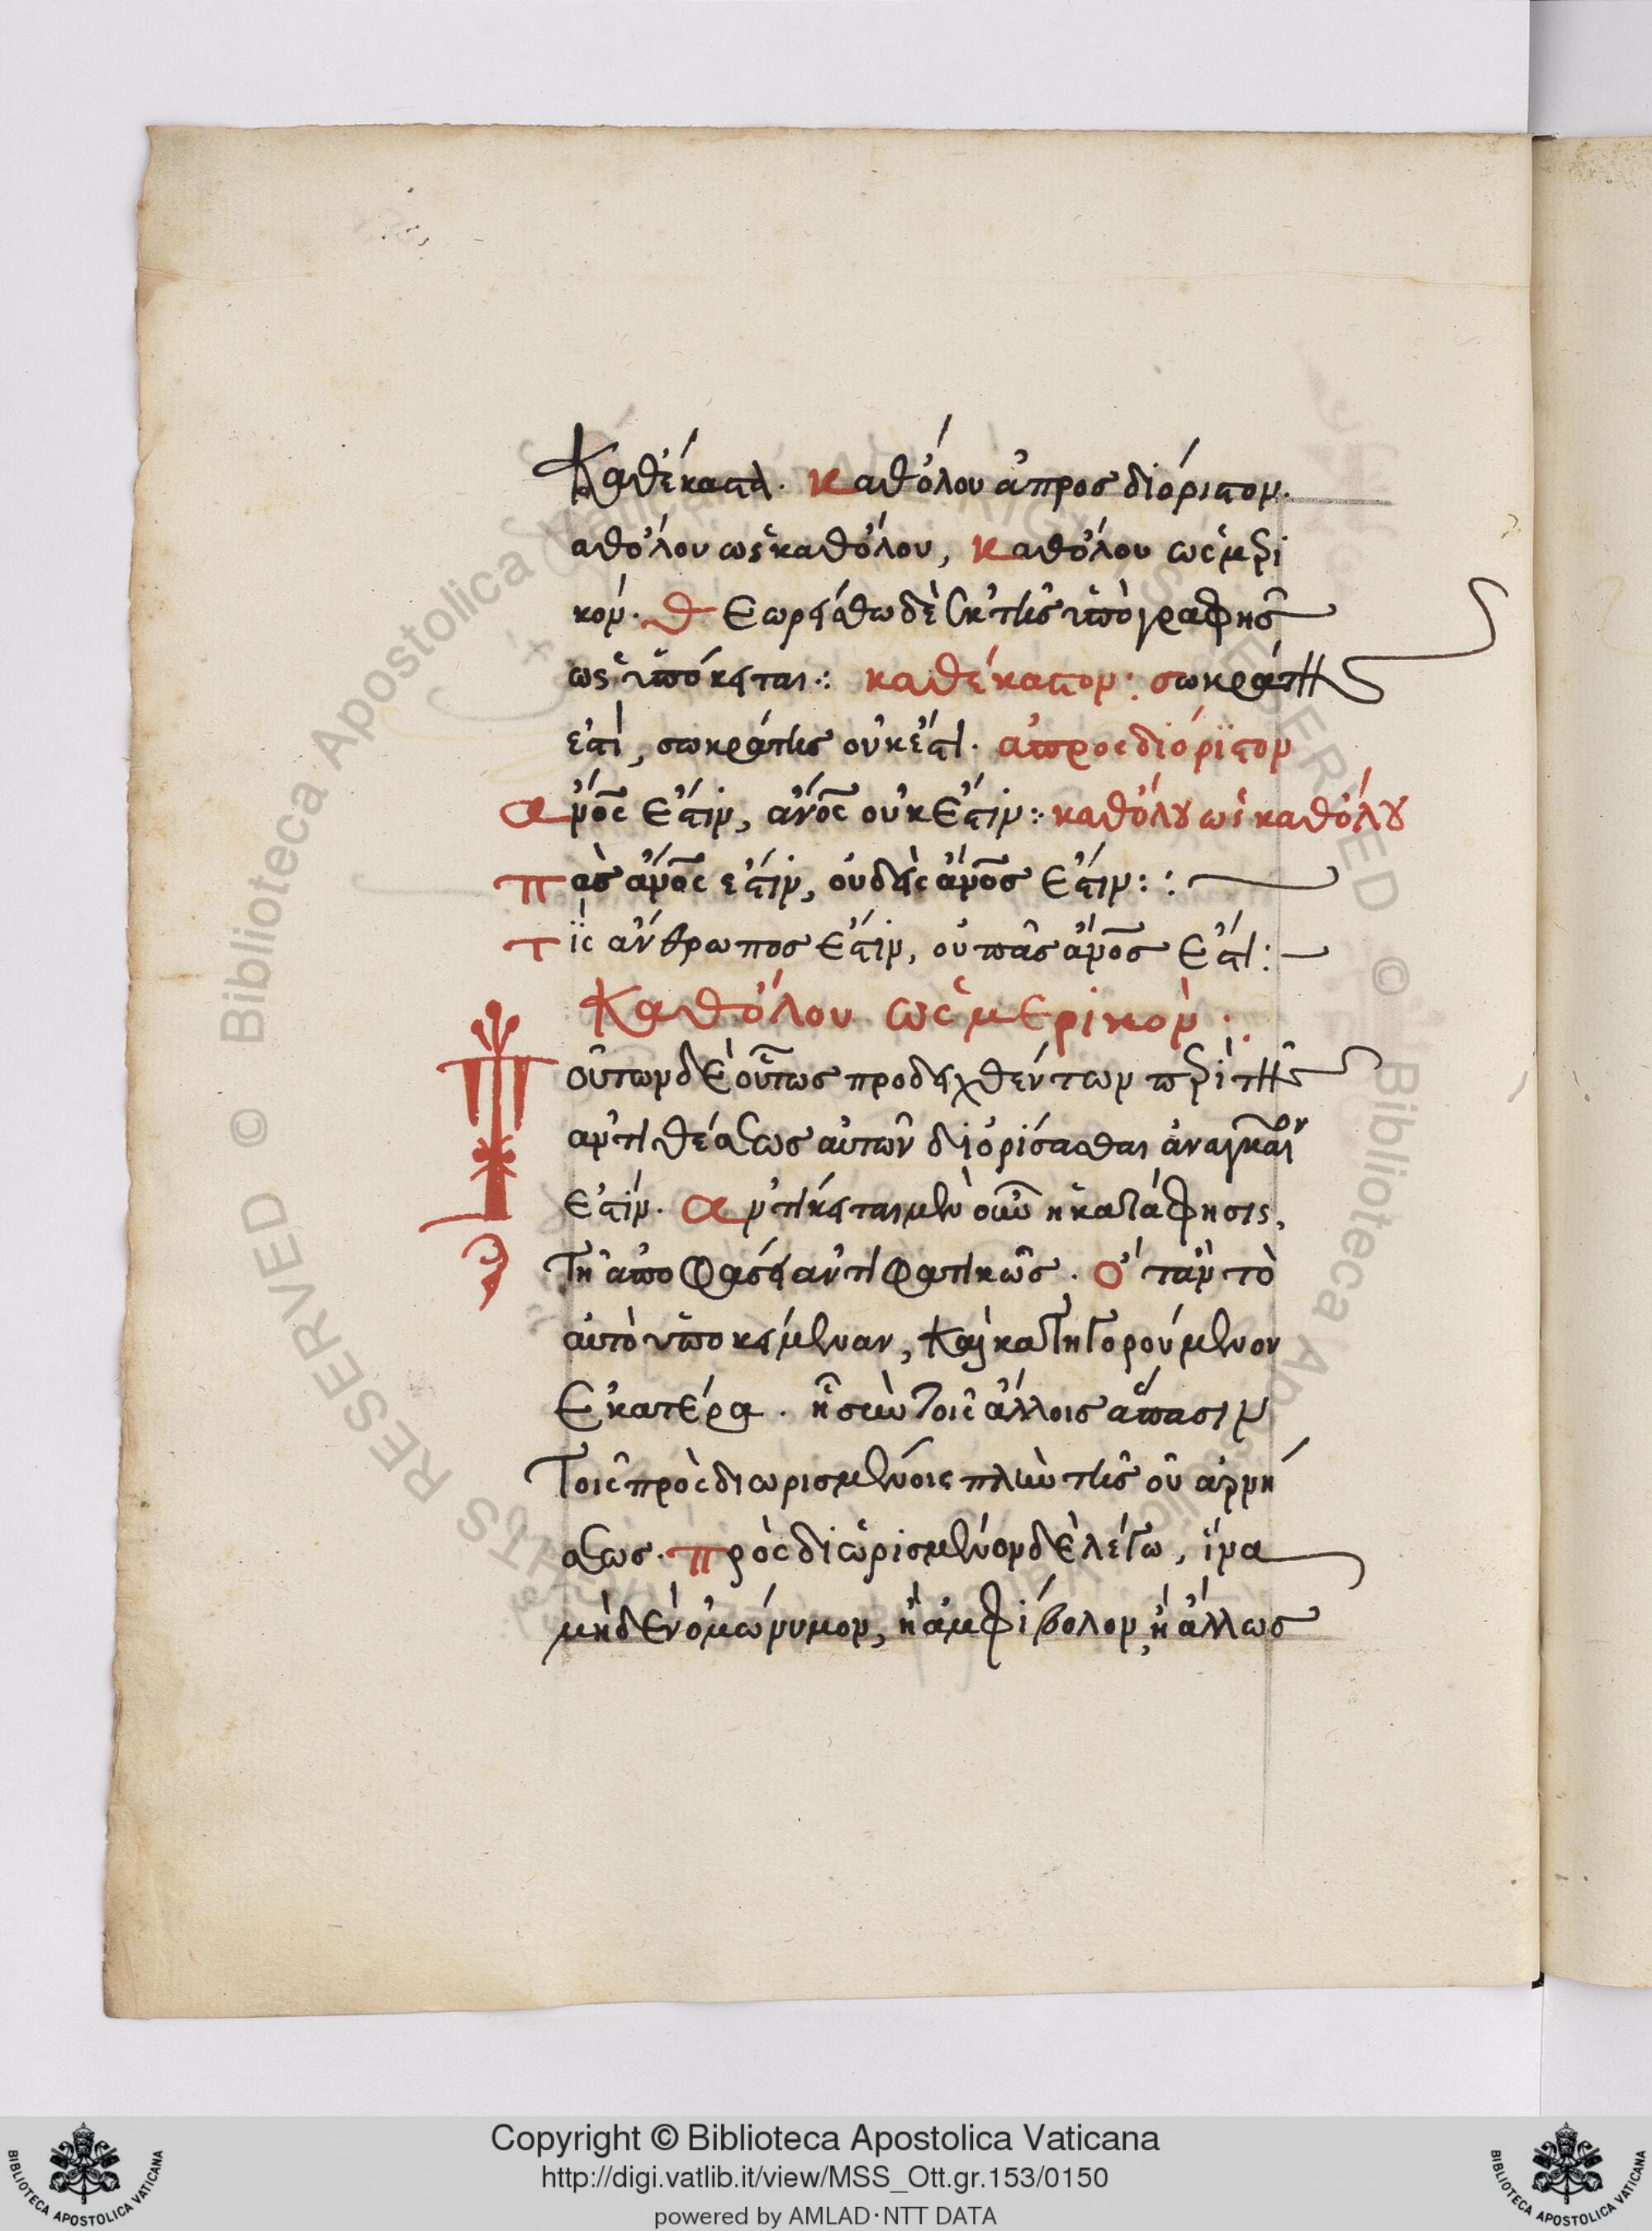 Καθέκαστα. Καθόλου ἀπροσδιόριστον.
αθόλου ὡς καθόλου, Καθόλου ὡς μερι
κόν. Θεωρείσθω δὲ ἐκ τῆς ὑπογραφῆς
ὡς ὑπόκειται: καθέκαστον: σωκράτης
ἐστὶ, σωκράτης οὐκ ἔστι. ἀπροσδιόριστον
ἄνος ἔστιν, ἄνος οὐκ ἔστιν: καθόλου ὡς καθόλου
πᾶς ἄνος ἔστιν, οὐδεὶς ἄνος ἔστιν:
τὶς ἄνθρωπος ἔστιν, οὐ πᾶς ἄνος ἔστι:
Καθόλου ὡς μερικόν:
Τούτων δὲ οὕτως προδειχθέντων περὶ τῆς
ἀντιθέσεως αὐτῶν διορίσασθαι ἀναγκαῖον
ἐστίν. Ἀντίκειται μὲν οὖν ἡ κατάφησις,
τῇ ἀποφάσει ἀντιφατικῶς. Ὅταν τὸ
αὐτὸ ὑποκείμενον, καὶ κατηγορούμενον
ἑκατέρα. ᾖ σὺν τοῖς ἄλλοις ἅπασιν
τοῖς προσδιωρισμένοις πλὴν τῆς οὐ ἀρνή
σεως. προσδιωρισμένον δὲ λέγω, ἵνα
μηδὲν ὁμώνυμον, ἢ ἀμφίβολον, ἢ ἄλλως
Copyright © Biblioteca Apostolica Vaticana
http://digi.vatlib.it/view/MSS_Ott.gr.153/0150
powered by AMLAD·NTT DATA
BIBLIOTECA APOSTOLICA VATICANA
BIBLIOTECA APOSTOLICA VATICANA